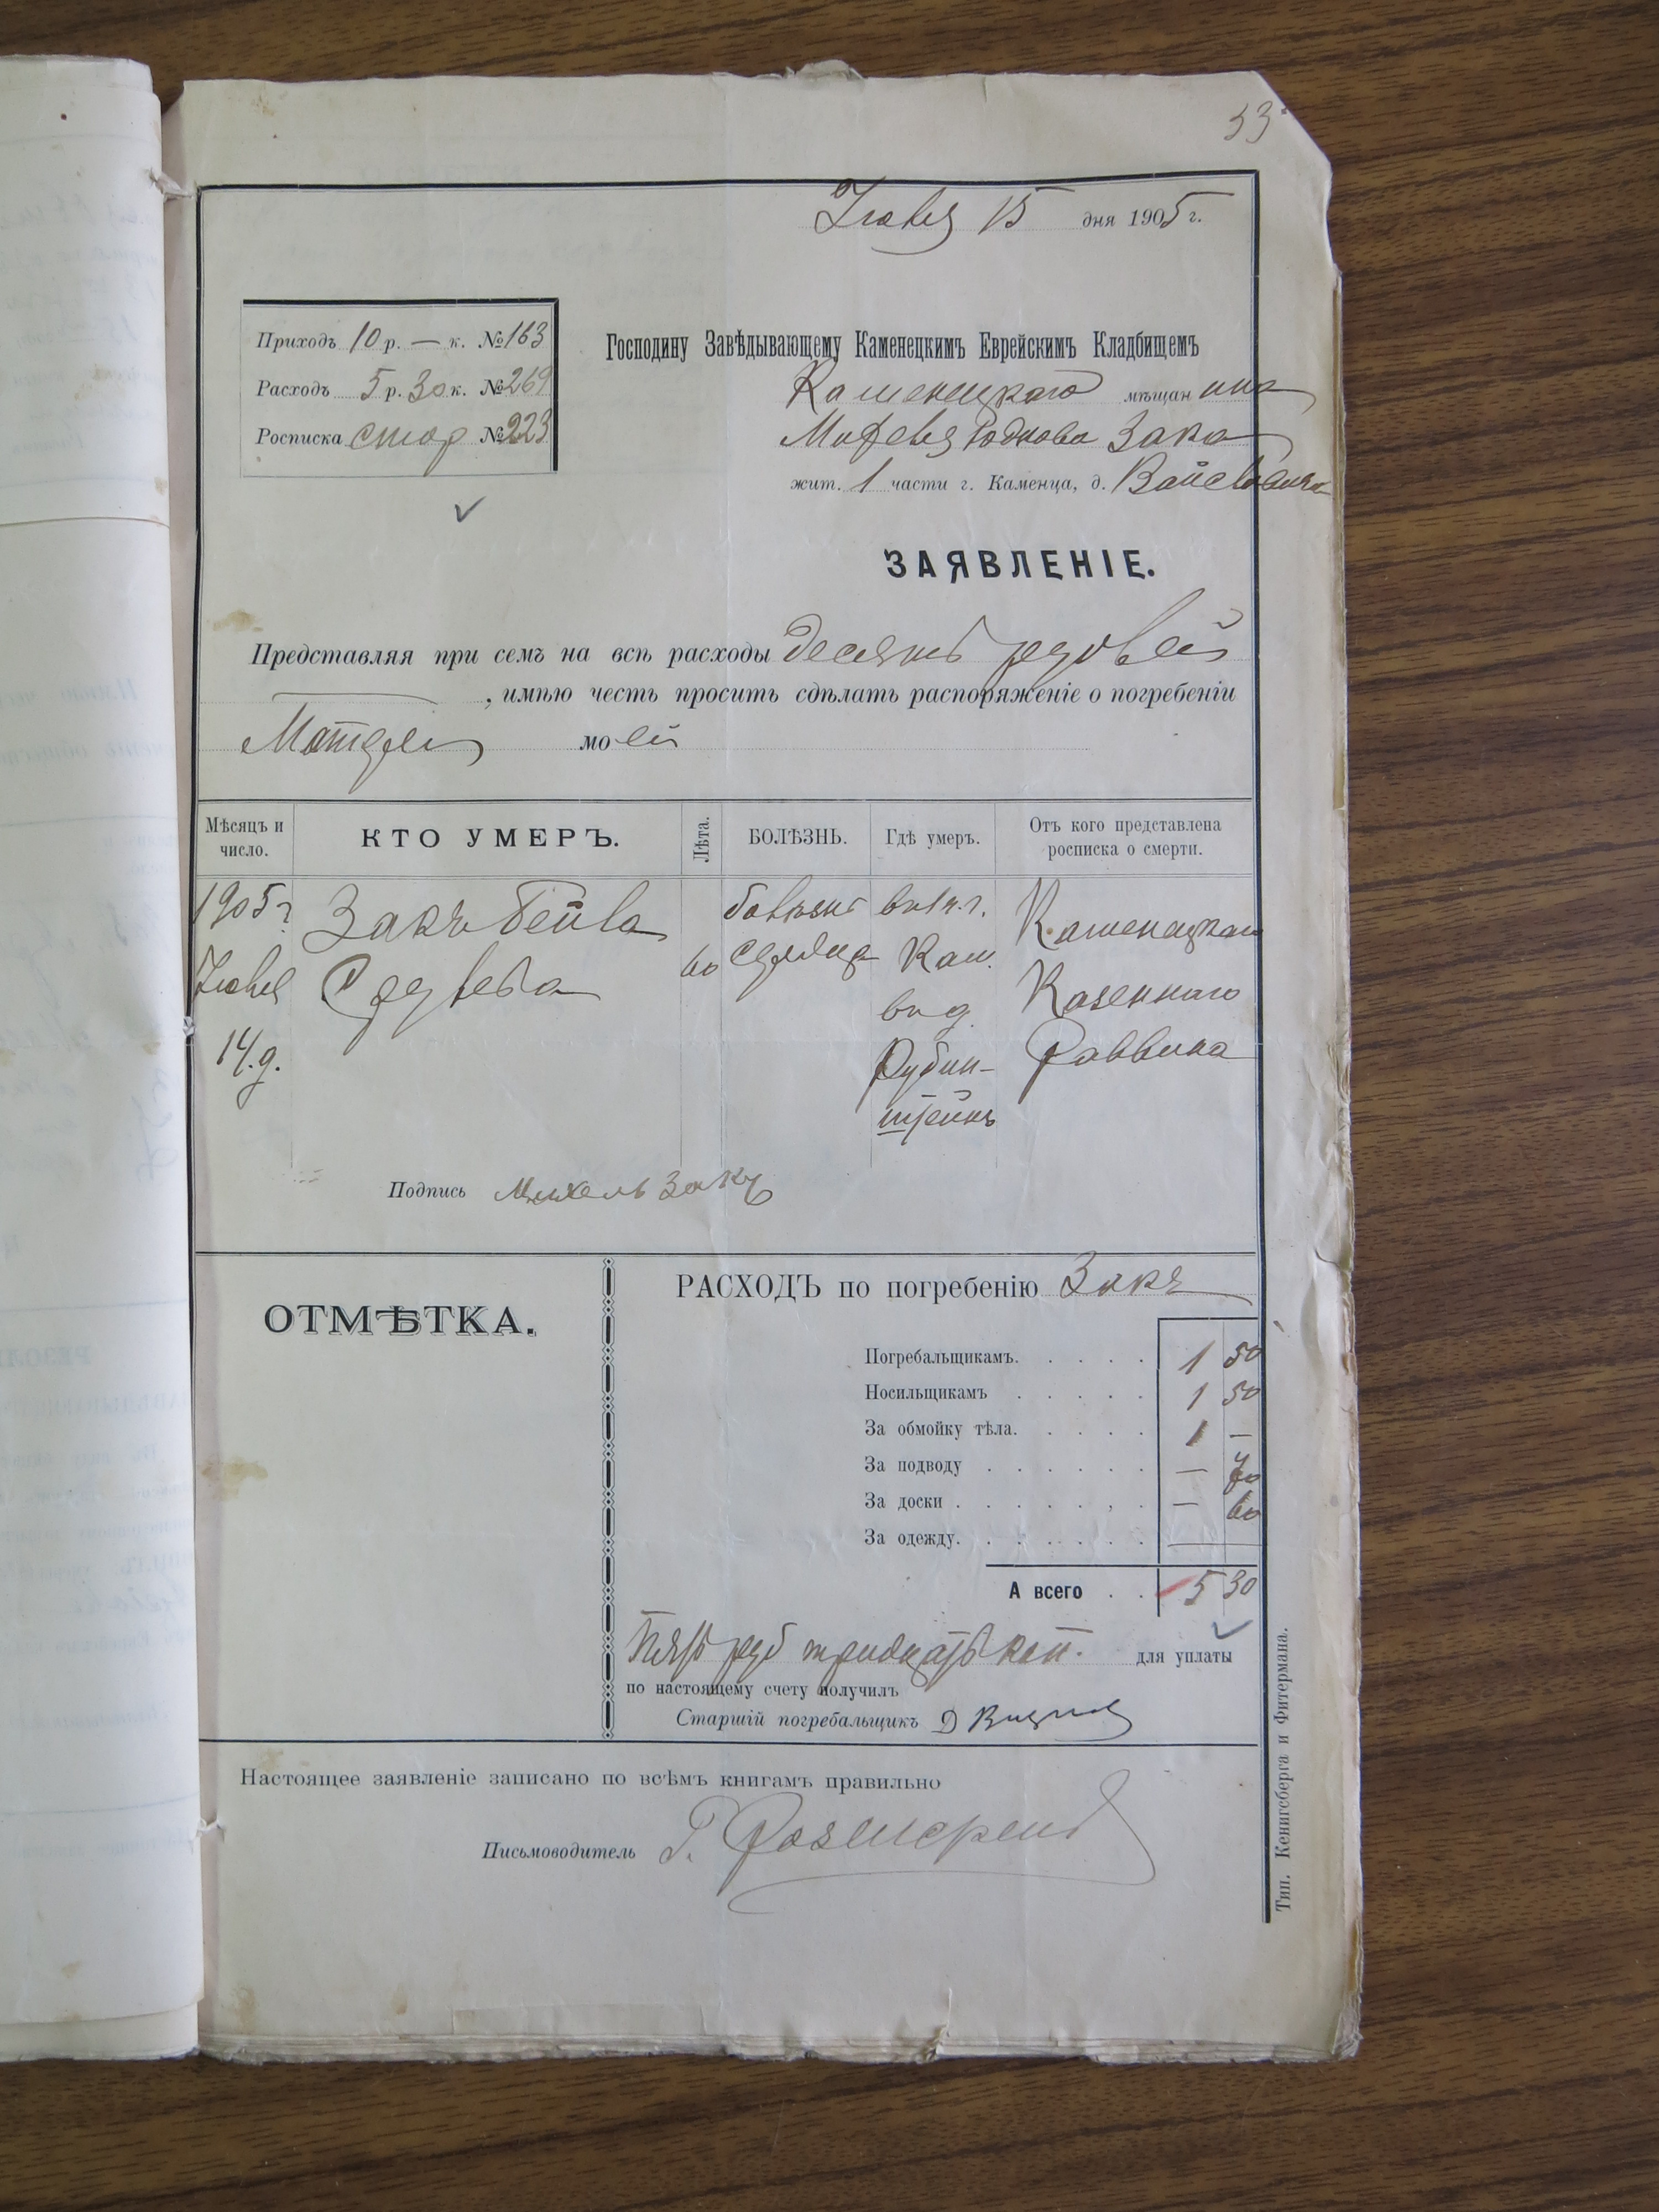 33
Іюля 15 дня 1905 г.
Приходъ 10 р. — к. № 163
Расходъ 5 р. 30 к. № 269
Росписка стар № 223
Господину Завѣдывающему Каменецкимъ Еврейскимъ Кладбищемъ
Каменецкаго мѣщанина
Зака
жит. 1 части г. Каменца, д.
ЗАЯВЛЕНІЕ.
Представляя при семъ на всѣ расходы десять рублей
, имѣю честь просить сдѣлать распоряженіе о погребеніи
Матери моей
Мѣсяцъ и число.
КТО УМЕРЪ.
Лѣта.
БОЛѢЗНЬ.
Гдѣ умеръ.
Отъ кого представлена росписка о смерти.
1905 г Закъ Бейла болѣзнь въ 1 ч. г. Каменецкаго
Іюля 60 сердца Кам. Казеннаго
14 д. въ д. Раввина
Рубин-
штейнъ
Подпись Михель Закъ
ОТМѢТКА.
РАСХОДЪ по погребенію Закъ
Погребальщикамъ. . . . . 1 50
Носильщикамъ . . . . . 1 50
За обмойку тѣла. . . . . 1 —
За подводу . . . . . . — 70
За доски . . . . . . . — 60
За одежду. . . . . . .
А всего . . 5 30
Пять руб тридцать коп. для уплаты
по настоящему счету получилъ
Старшій погребальщикъ Д
Настоящее заявленіе записано по всѣмъ книгамъ правильно
Письмоводитель Г.
Тип. Кенигсберга и Фитермана.